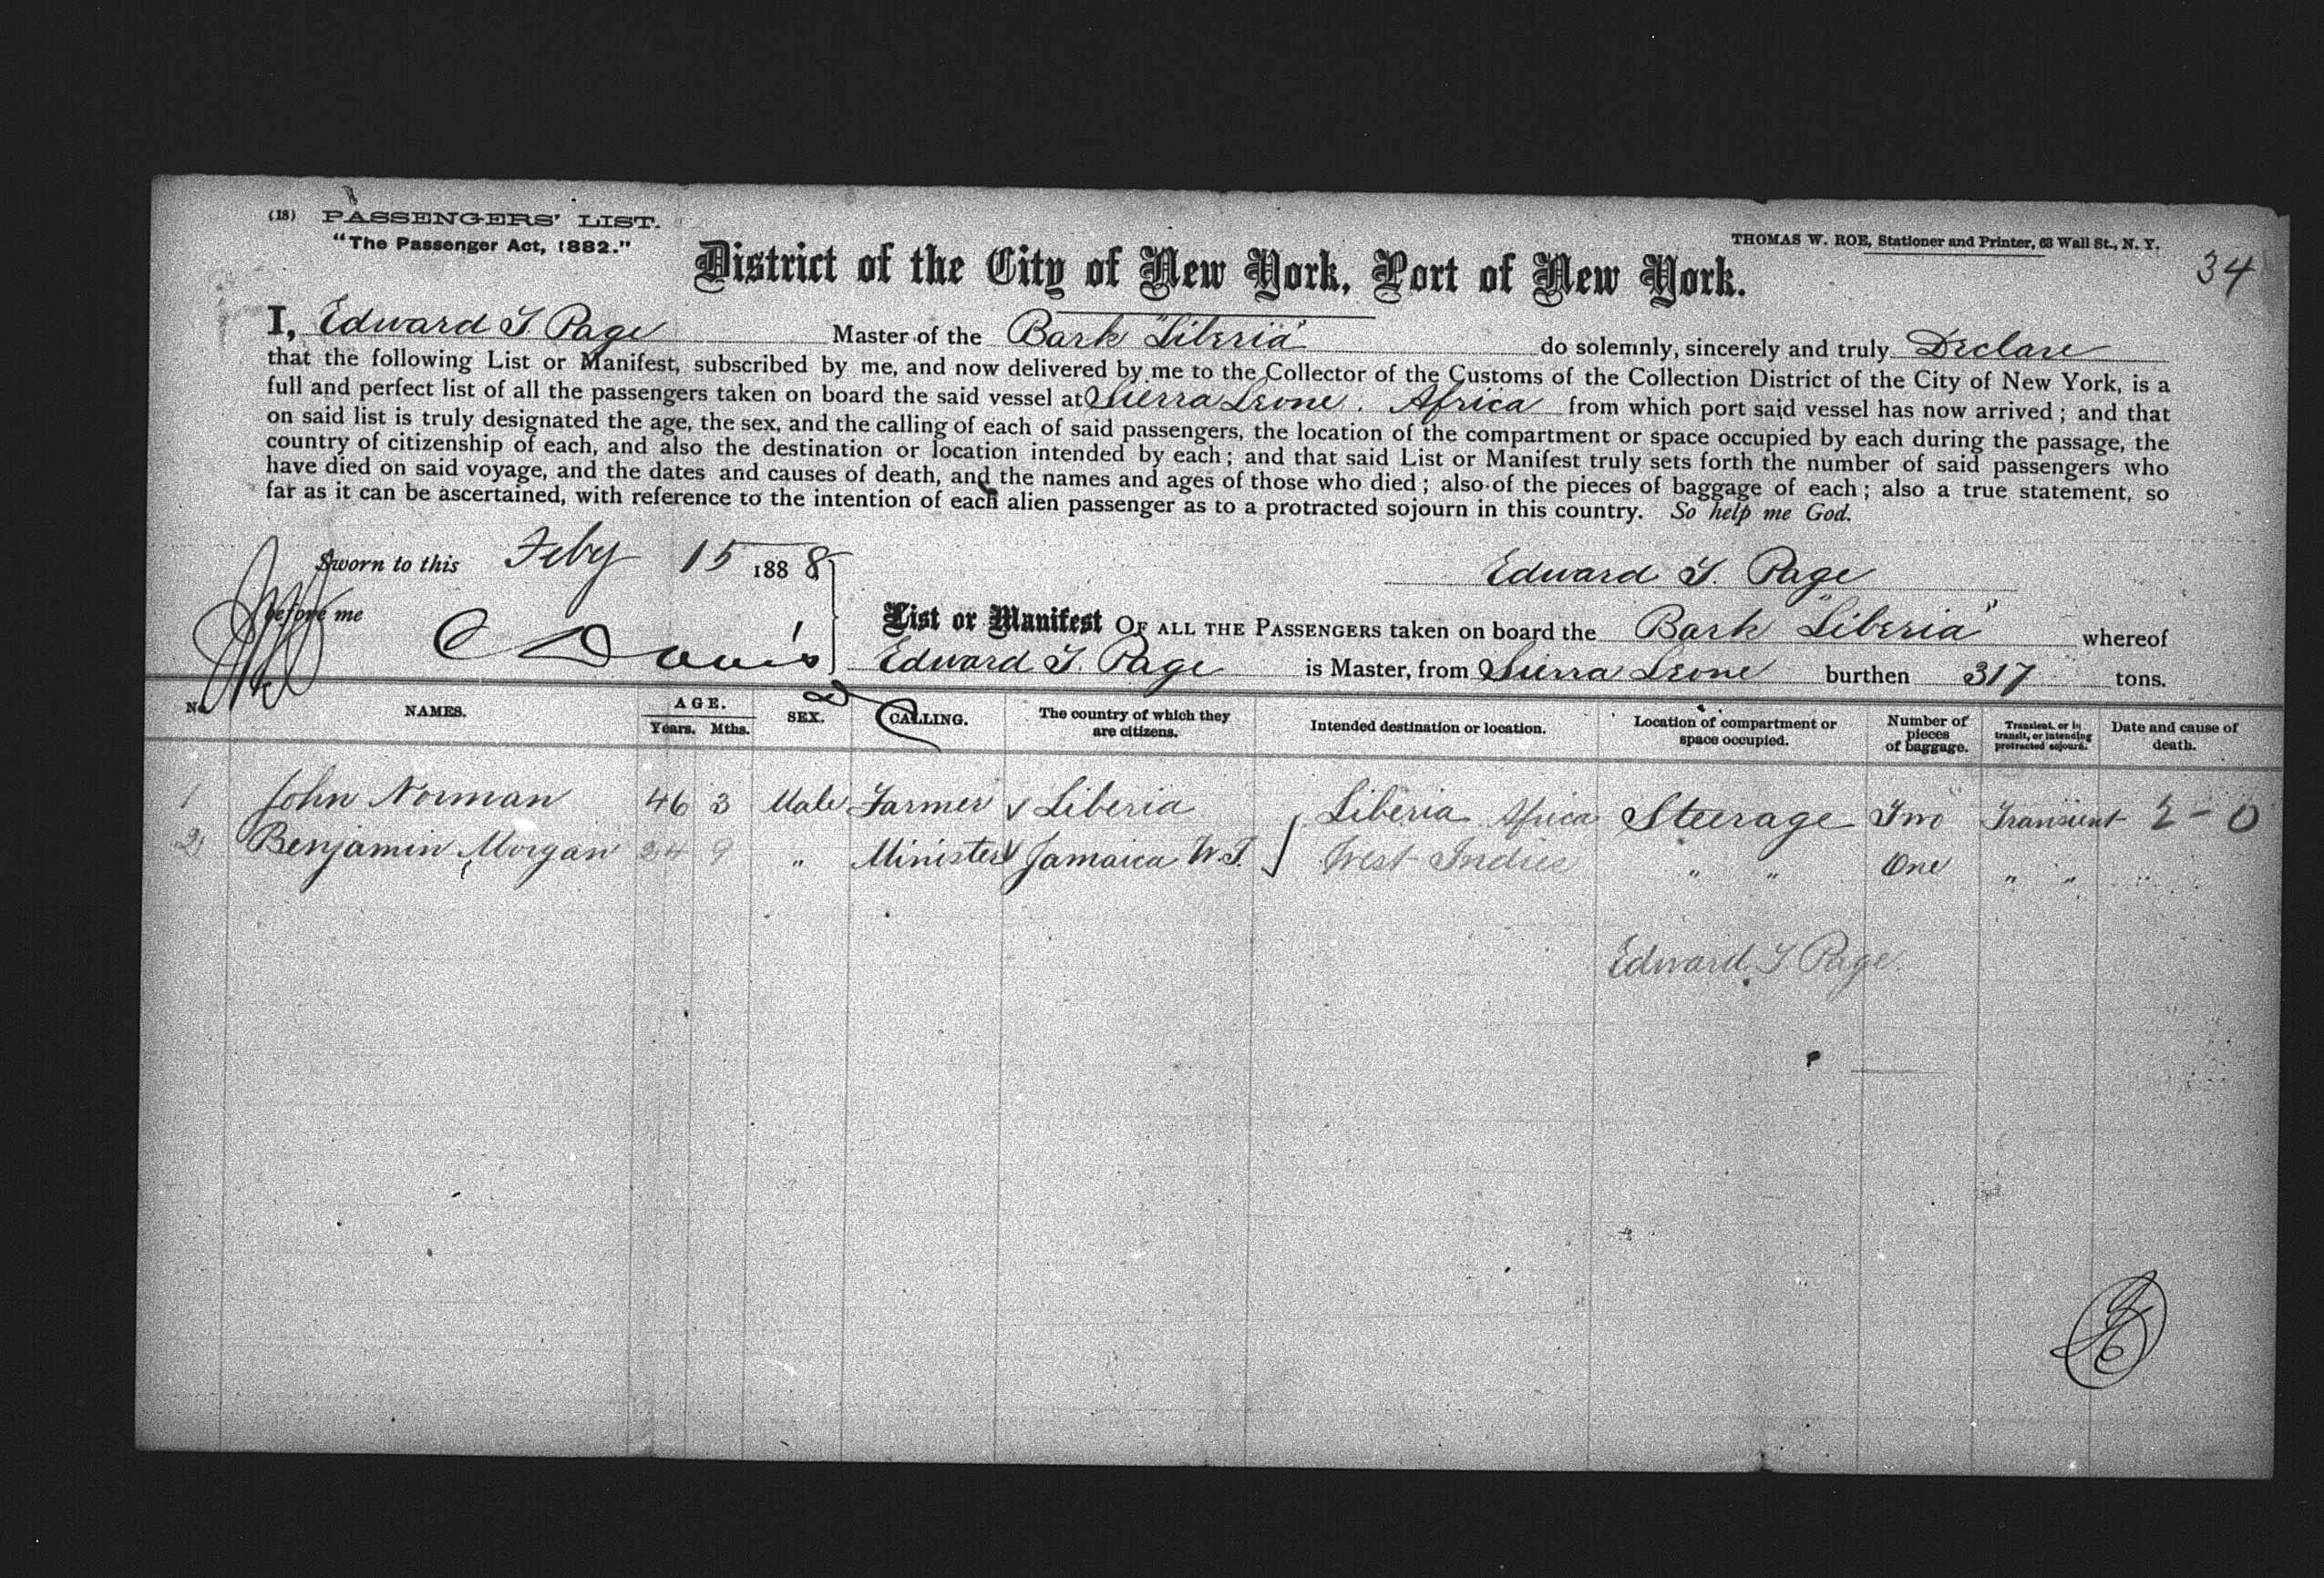 (18) PASSENGERS' LIST.
"The Passenger Act, 1882."
THOMAS W. ROE, Stationer and Printer, 63 Wall St., N. Y.
34
District of the City of New York, Port of New York.
I, Edward T Page Master of the Bark "Liberia" do solemnly, sincerely and truly Declare
that the following List or Manifest, subscribed by me, and now delivered by me to the Collector of the Customs of the Collection District of the City of New York, is a
full and perfect list of all the passengers taken on board the said vessel at Sierra Leone. Africa from which port said vessel has now arrived; and that
on said list is truly designated the age, the sex, and the calling of each of said passengers, the location of the compartment or space occupied by each during the passage, the
country of citizenship of each, and also the destination or location intended by each; and that said List or Manifest truly sets forth the number of said passengers who
have died on said voyage, and the dates and causes of death, and the names and ages of those who died; also of the pieces of baggage of each; also a true statement, so
far as it can be ascertained, with reference to the intention of each alien passenger as to a protracted sojourn in this country. So help me God.
Sworn to this Feby 15 1888
Edward T. Page
before me C Davis
List or Manifest OF ALL THE PASSENGERS taken on board the Bark "Liberia" whereof
Edward T. Page is Master, from Sierra Leone burthen 317 tons.
No. NAMES. AGE. Years. Mths. SEX. CALLING. The country of which they are citizens. Intended destination or location. Location of compartment or space occupied. Number of pieces of baggage. Transient, or in transit, or intending protracted sojourn. Date and cause of death.
1 John Norman 46 3 Male Farmer Liberia Liberia Africa Steerage Two Transient 2 - 0
2 Benjamin Morgan 34 9 " Minister Jamaica W.I. West Indies " " One " "
Edward T Page